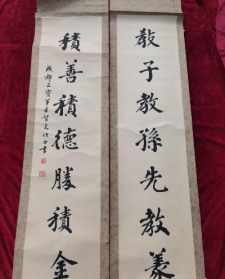 教子教孫先教義
積善積德勝積金